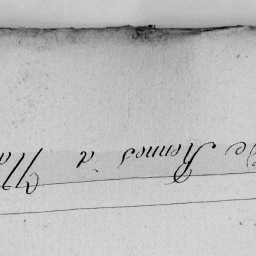 De Rennes à Na